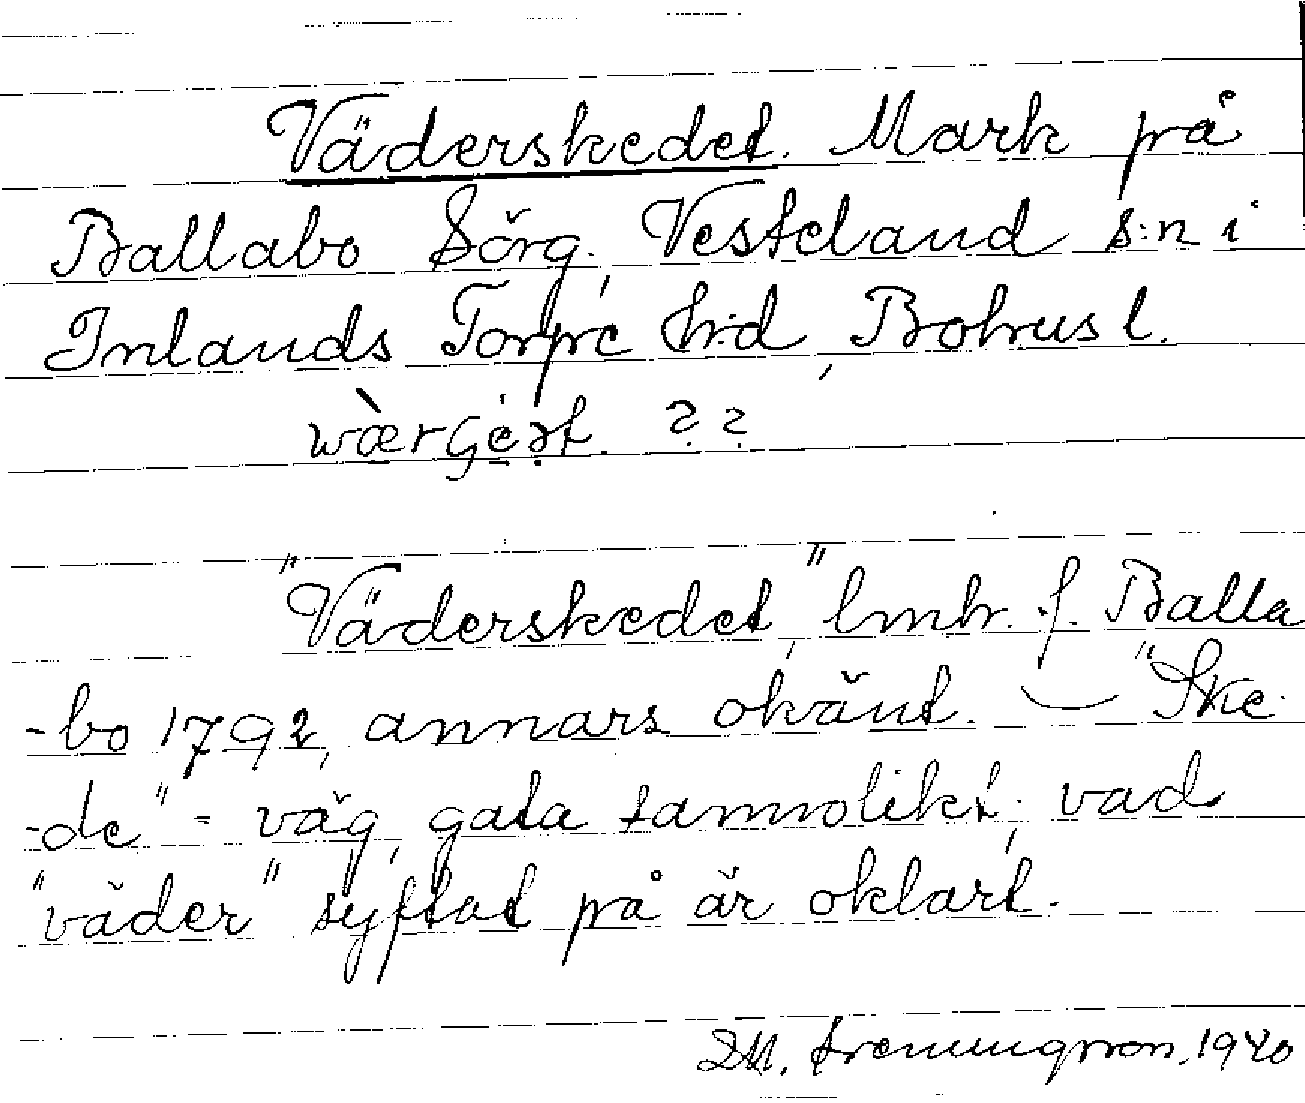 Väderskedet. Mark på
Ballabo Sörg. Vesterland s:n i
Inlands Torpe h:d, Bohusl.
wærg ?
"Väderskedet", lmh. f. Balla
-bo 1792, annars okänt. — "Ske
-de" - väg, gata sannolikt; vad
"väder" syftat på är oklart.
1940